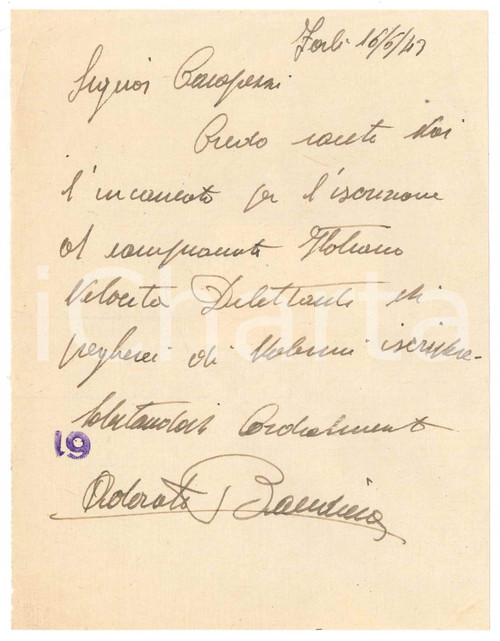 Forlì 16/6/47
Signor Casapezzi
Credo siate Voi
l'incaricato per l'iscrizione
al campionato Italiano
Velocità Dilettanti vi
pregherei di volermi iscrivere.
Salutandovi Cordialmente
19
Adorato Bandini
iCharta